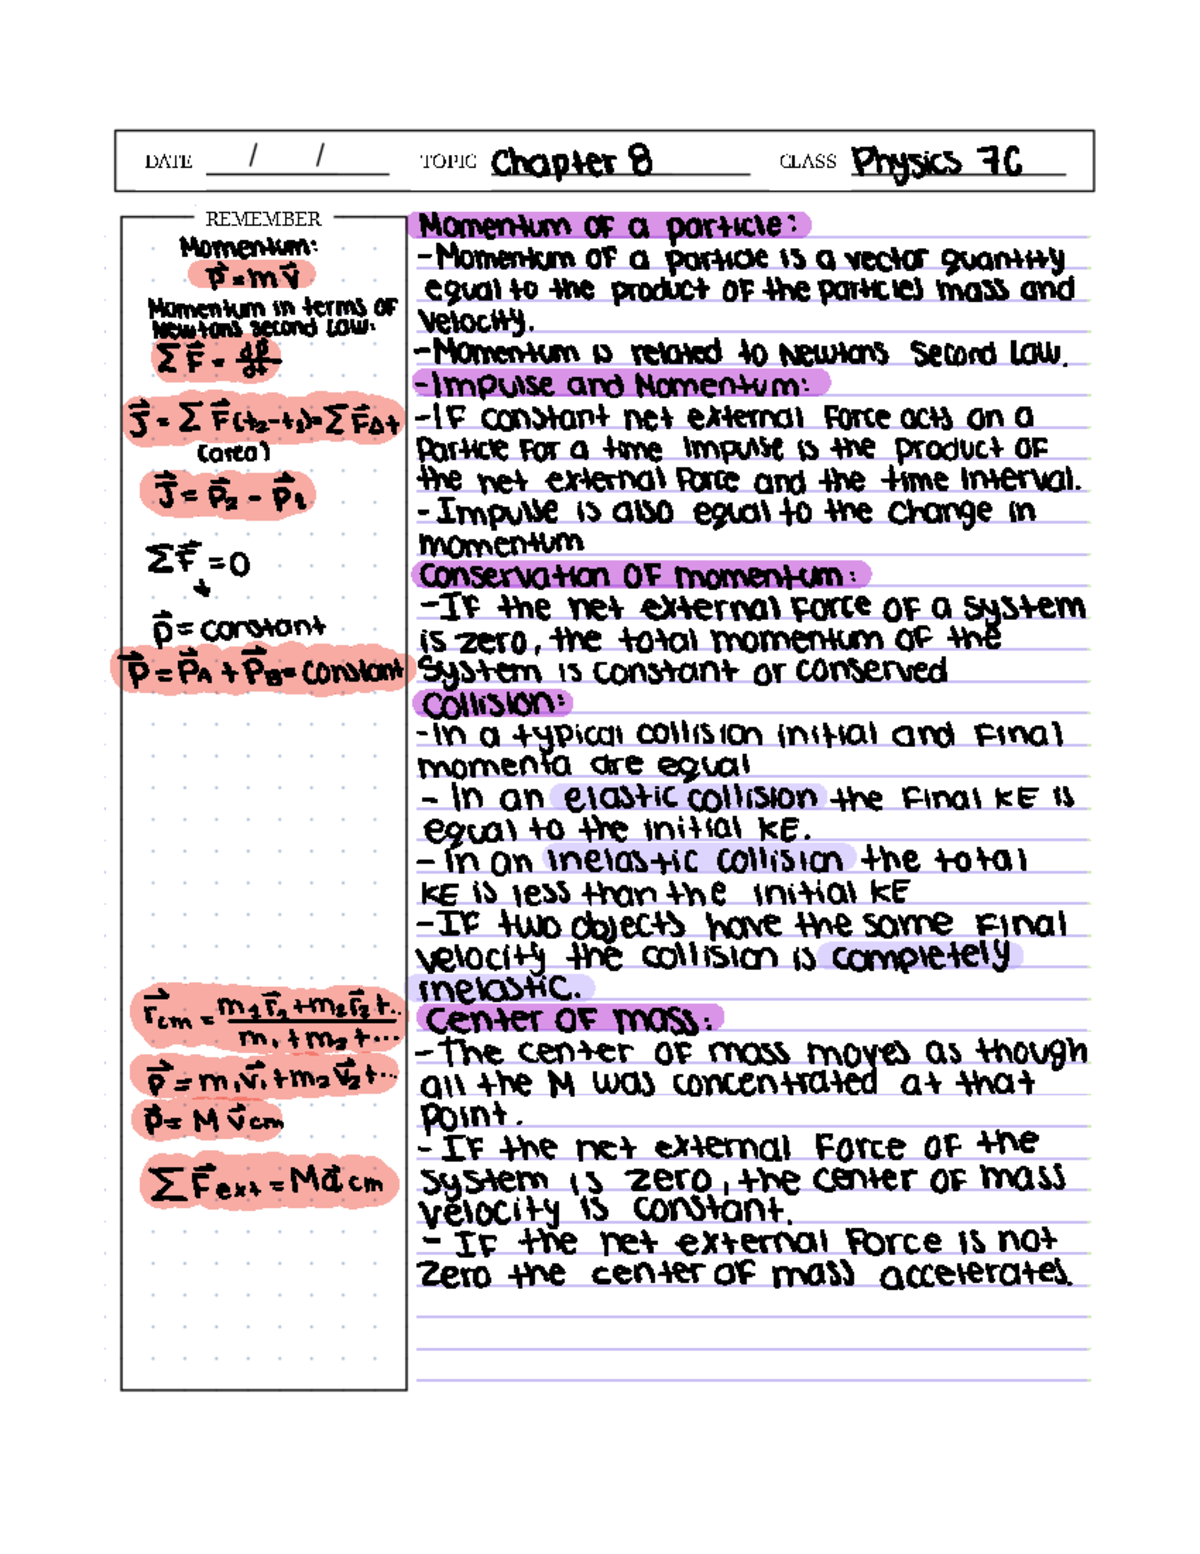 DATE / / TOPIC Chapter 8 CLASS Physics 7C
REMEMBER
Momentum:
p⃗ = m v⃗
Momentum in terms of
Newtons second law:
Σ F⃗ = dp⃗/dt
J⃗ = Σ F⃗(t₂-t₁)=Σ F⃗Δt
(area)
J⃗ = p⃗₂ - p⃗₁
Σ F⃗ = 0
↓
p⃗ = constant
p⃗ = p⃗A + p⃗B = constant
r⃗cm = m₁r⃗₁+m₂r⃗₂+.. / m₁+m₂+...
p⃗ = m₁v⃗₁+m₂v⃗₂+...
p⃗ = M v⃗cm
Σ F⃗ext = Ma⃗cm
Momentum of a particle:
-Momentum of a particle is a vector quantity
equal to the product of the particles mass and
velocity.
-Momentum is related to Newtons Second law.
-Impulse and Momentum:
-If constant net external force acts on a
particle for a time impulse is the product of
the net external force and the time interval.
-Impulse is also equal to the change in
momentum
Conservation of momentum:
-If the net external force of a system
is zero, the total momentum of the
system is constant or conserved
Collision:
-In a typical collision initial and final
momenta are equal
- In an elastic collision the final KE is
equal to the initial KE.
- In an inelastic collision the total
KE is less than the initial KE
-If two objects have the same final
velocity the collision is completely
inelastic.
Center of mass:
-The center of mass moves as though
all the M was concentrated at that
point.
-If the net external force of the
system is zero, the center of mass
velocity is constant.
- If the net external force is not
zero the center of mass accelerates.